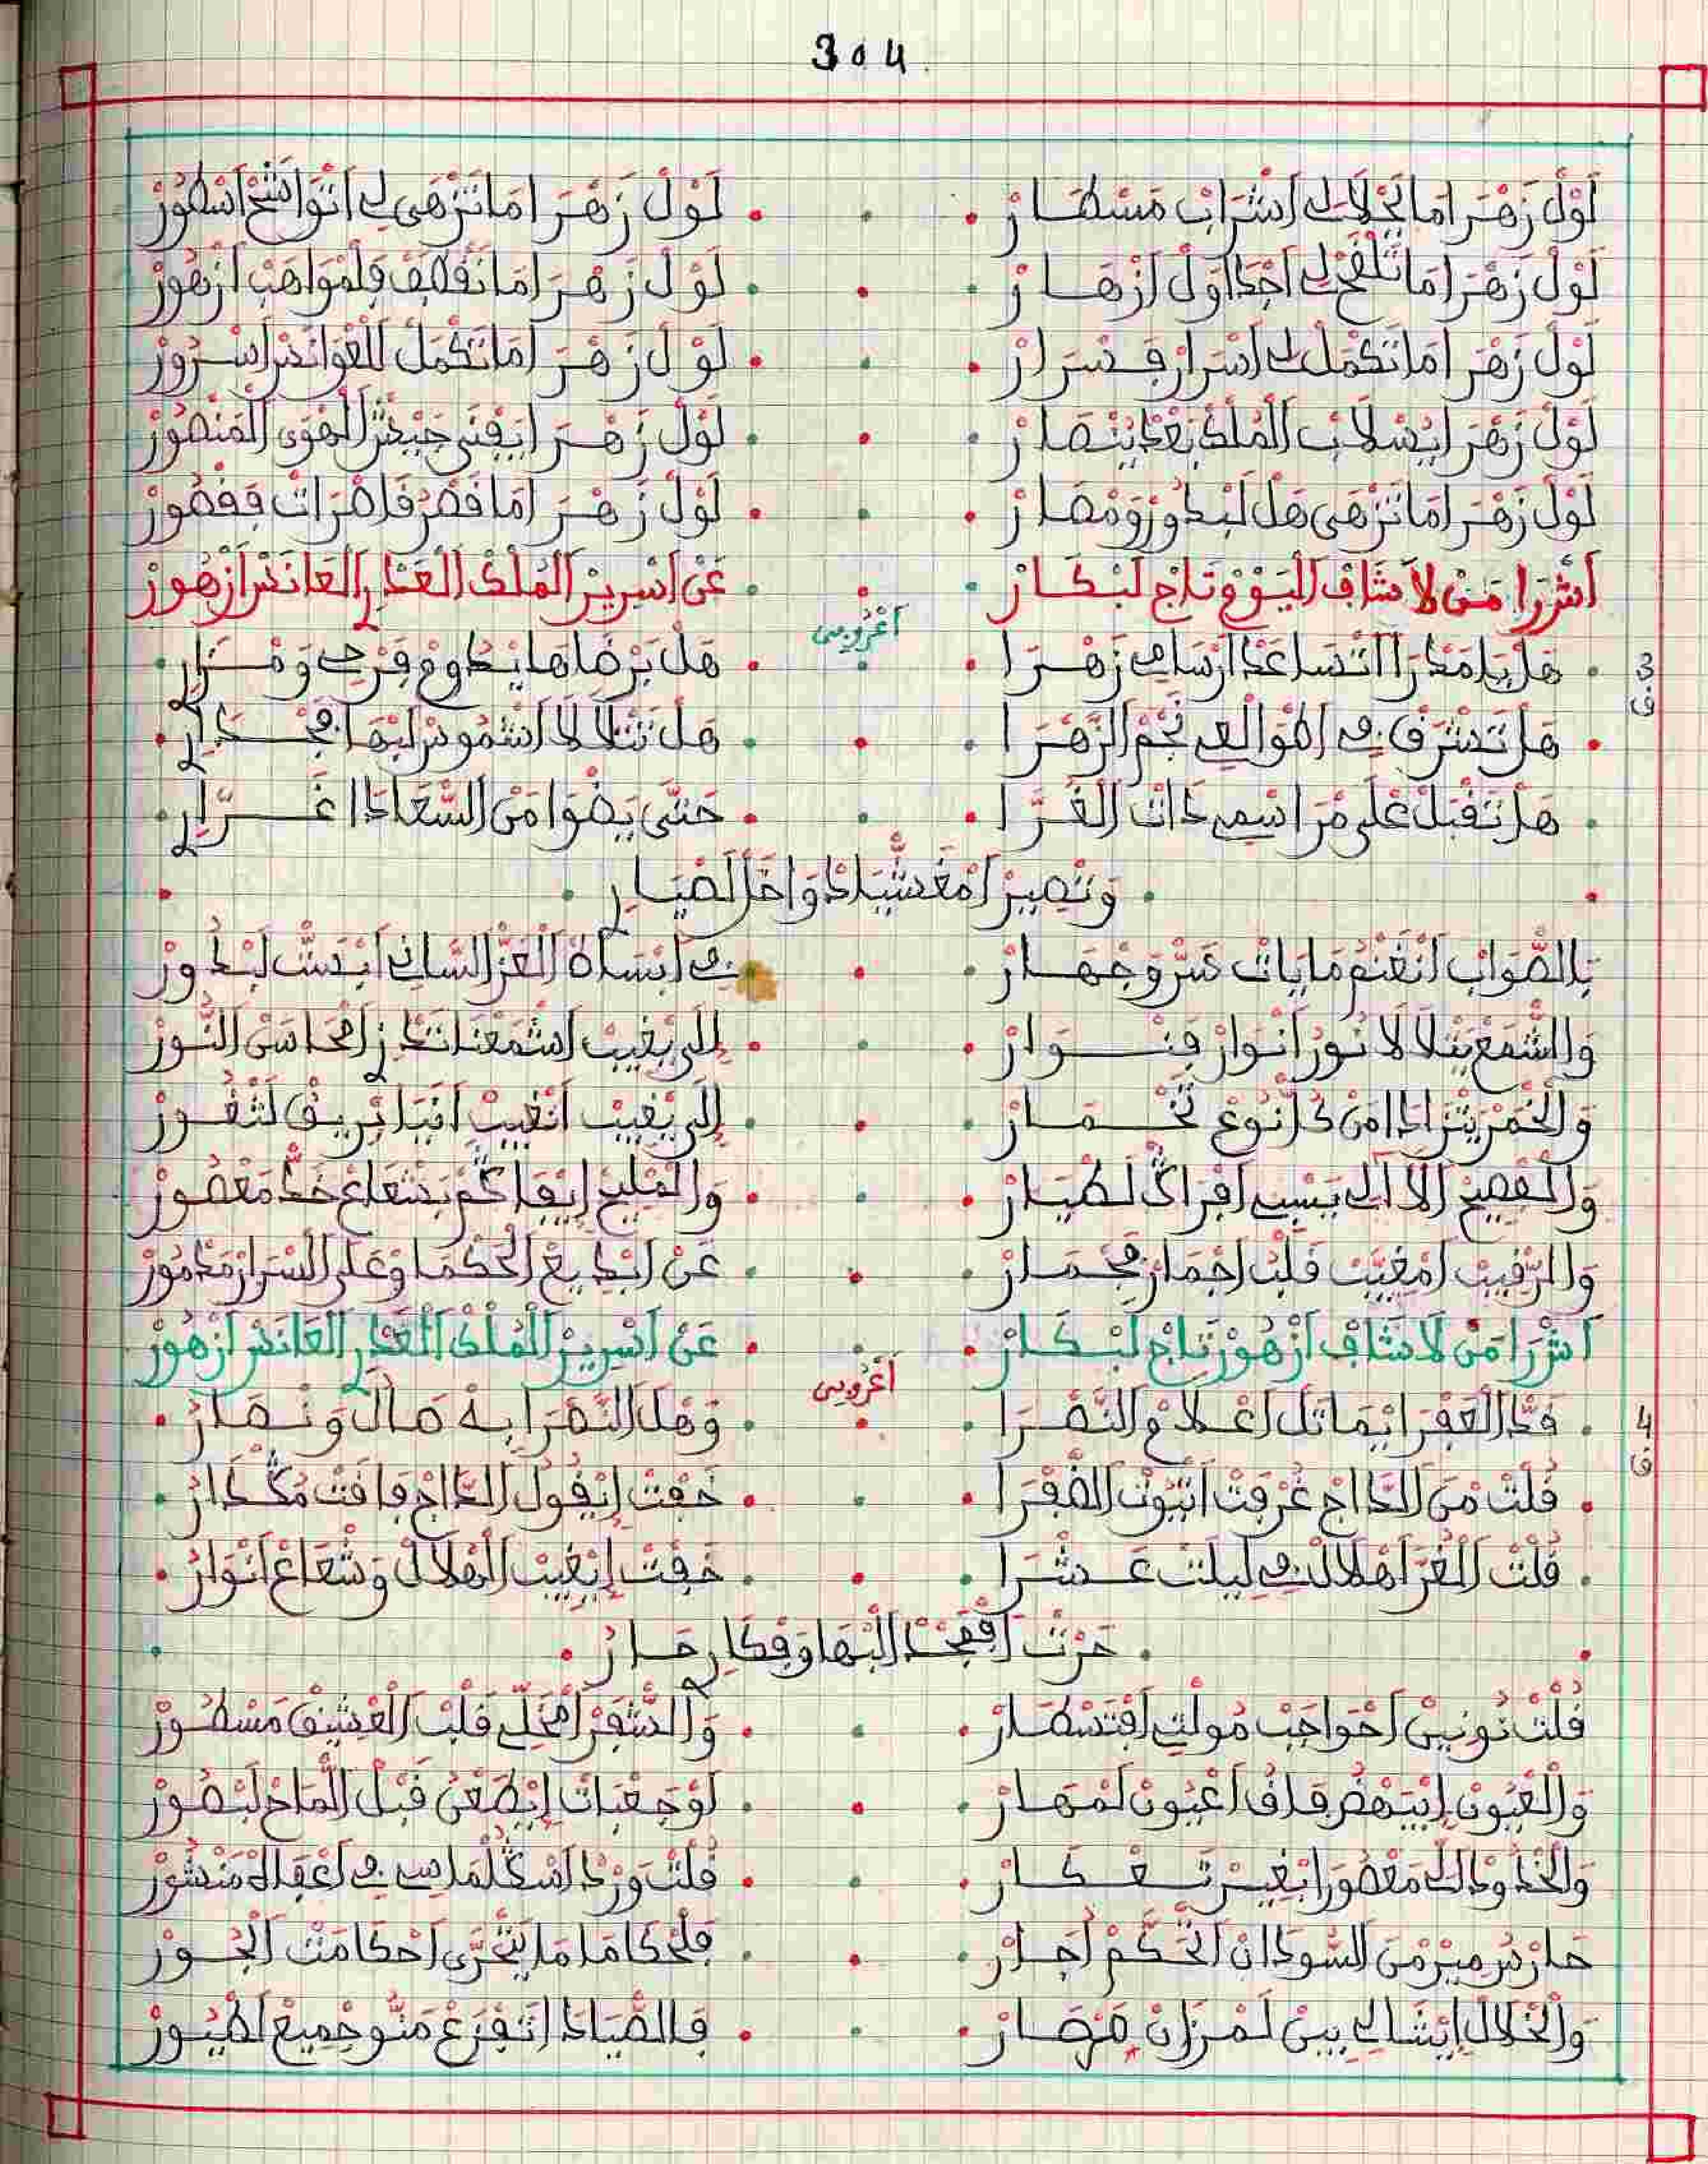 304
لَوْلْ زَهْرَا مَا يَحْلَالِي اشْرَابْ مَسْطَارْ لَوْلْ زَهْرَا مَا نَزْهَى لِي اتْوَاشَحْ اسْطُورْ
لَوْلْ زَهْرَا مَا تَلْفَحْ لِي اجْدَاوَلْ ازْهَارْ لَوْلْ زَهْرَا مَا نَقْطَفْ فَلْمْوَاهَبْ ازْهُورْ
لَوْلْ زَهْرَا مَا تَكْمَلْ لِي اسْرَارْ فَسْرَارْ لَوْلْ زَهْرَا مَا تَكْمَلْ الْغْوَانَسْ اسْرُورْ
لَوْلْ زَهْرَا يَسْلَابْ الْمُلْكْ بَعْدْ يَنْصَارْ لَوْلْ زَهْرَا يَفْنَى جَيْشْ الْهْوَى الْمَنْصُورْ
لَوْلْ زَهْرَا مَا نَزْهَى هَلْ لَبْدُورْ وَمْصَارْ لَوْلْ زَهْرَا مَا قَصْرْ قَاصْرَاتْ فَقْصُورْ
اشْرَا مَنْ لَا شَافْ الْيَوْمْ تَاجْ لَبْكَارْ عَنْ اسْرِيرْ الْمُلْكْ الْعَدْرِ الْعَانَسْ ازْهُورْ
اعْرُوبِي
3
ف
هَلْ يَا مَدْرَا اتْسَاعَدْ ارْسَامِي زَهْرَا هَلْ يَرْضَاهَا يْدُومْ فَرْحِي وَمْزَارِي
هَلْ تَشْرَقْ فِي اطْوَالْعِي نَجْمْ الزَّهْرَا هَلْ تَتْلَالَا اشْمُوسْ لَبْهَا فَجْدَارِي
هَلْ تَقْبَلْ عْلَى مْرَاسْمِي دَاتْ الْغُرَّا حَتَّى يَضْوَا مَنْ السَّعَادَا غُرَّارِي
وَتْصِيرْ امْغَشْيَادْ وَاحَلْ لَصْيَارِي
بَالصّْوَابْ انْغَنْمُ مَا يَاتْ سَرّْ وَجْهَارْ فِي ابْسَاطْ الْعَزّْ السَّانِي ابْدَسْتْ لَبْدُورْ
وَالشْمَعْ يَتْلَالَا نُورْ انْوَارْ فَنْوَارْ اِلَى يْغِيبْ اشْمَعْنَا تَنْدَزْ امْحَاسَنْ النُّورْ
وَالْخْمَرْ يَتْزَادَا مَنْ كُلّْ نُوعْ تَخْمَارْ اِلَى يْغِيبْ انْغِيبْ افْيَا بْرِيقْ لَتْغُورْ
وَالْفْصِيحْ الْآلِي يَسْبِي افْرَاكْ لَطْيَارْ وَالْمْلِيحْ اِيْفَاكُمْ بَشْعَاعْ خَدّْ مَعْصُورْ
وَالرْقِيبْ امْغَيَّبْ قَلْبْ اجْمَارْ فَجْمَارْ عَنْ ابْدِيعْ الْحُكْمَا وَعْلَى السْرَارْ مَدْمُورْ
اشْرَا مَنْ لَا شَافْ ازْهُورْ تَاجْ لَبْكَارْ عَنْ اسْرِيرْ الْمُلْكْ الْعَدْرِ الْعَانَسْ ازْهُورْ
اعْرُوبِي
4
ف
قَدّْ الْعَفْرَا يْمَاتَلْ اعْلَامْ النَّصْرَا وَهْلْ النَّصْرَا بِهْ صَالْ وَنْصَارُ
قُلْتْ مْنَ الدَّاجْ غُرْقَتْ اتْيُوتْ الضَّفْرَا خَفْتْ اِيْقُولْ الدَّاجْ فَاقَتْ مُكْدَارُ
قُلْتْ الْغُرَّا هْلَالْ فِي لِيلَتْ عَشْرَا خَفْتْ اِيْغِيبْ الْهْلَالْ وَشْعَاعْ انْوَارُ
حَرْتْ افْمَجْدْ الْبْهَا وَفْكَارِي حَارُ
قُلْتْ نُونِينْ احْوَاجَبْ مُولْتِي افْتَسْطَارْ وَالشْفَرْ امْحَلِّي قَلْبْ الْعْشِيقْ مَسْطُورْ
وَالْعْيُونْ اِيْبَتْهْضُ فَاقُ اعْيُونْ لَمْهَارْ اوْجَعْبَاتْ اِيْطَعْنُ قَبْلْ الْمَاحْ لَبْصُورْ
وَالْخْدُودْ الِّي مَعْصُورَا بْغِيرْ تَعْكَارْ قُلْتْ وَرْدْ اسْكُلْمَاسِي فِي اعْقَالُهْ مَنْشُورْ
حَارْسُ مِيرْ مْنَ السُّودَانْ الْحُكَمْ اجَارْ فَلْحْكَامَا مَا يَتْحَرَّى احْكَامَتْ الْجُورْ
وَالْخْلَالْ اِيْشَالِي بِينْ لَمْزَانْ هَرْصَارْ فَالصْيَادَا تَفْزَعْ مَنُّو جْمِيعْ لَطْيُورْ